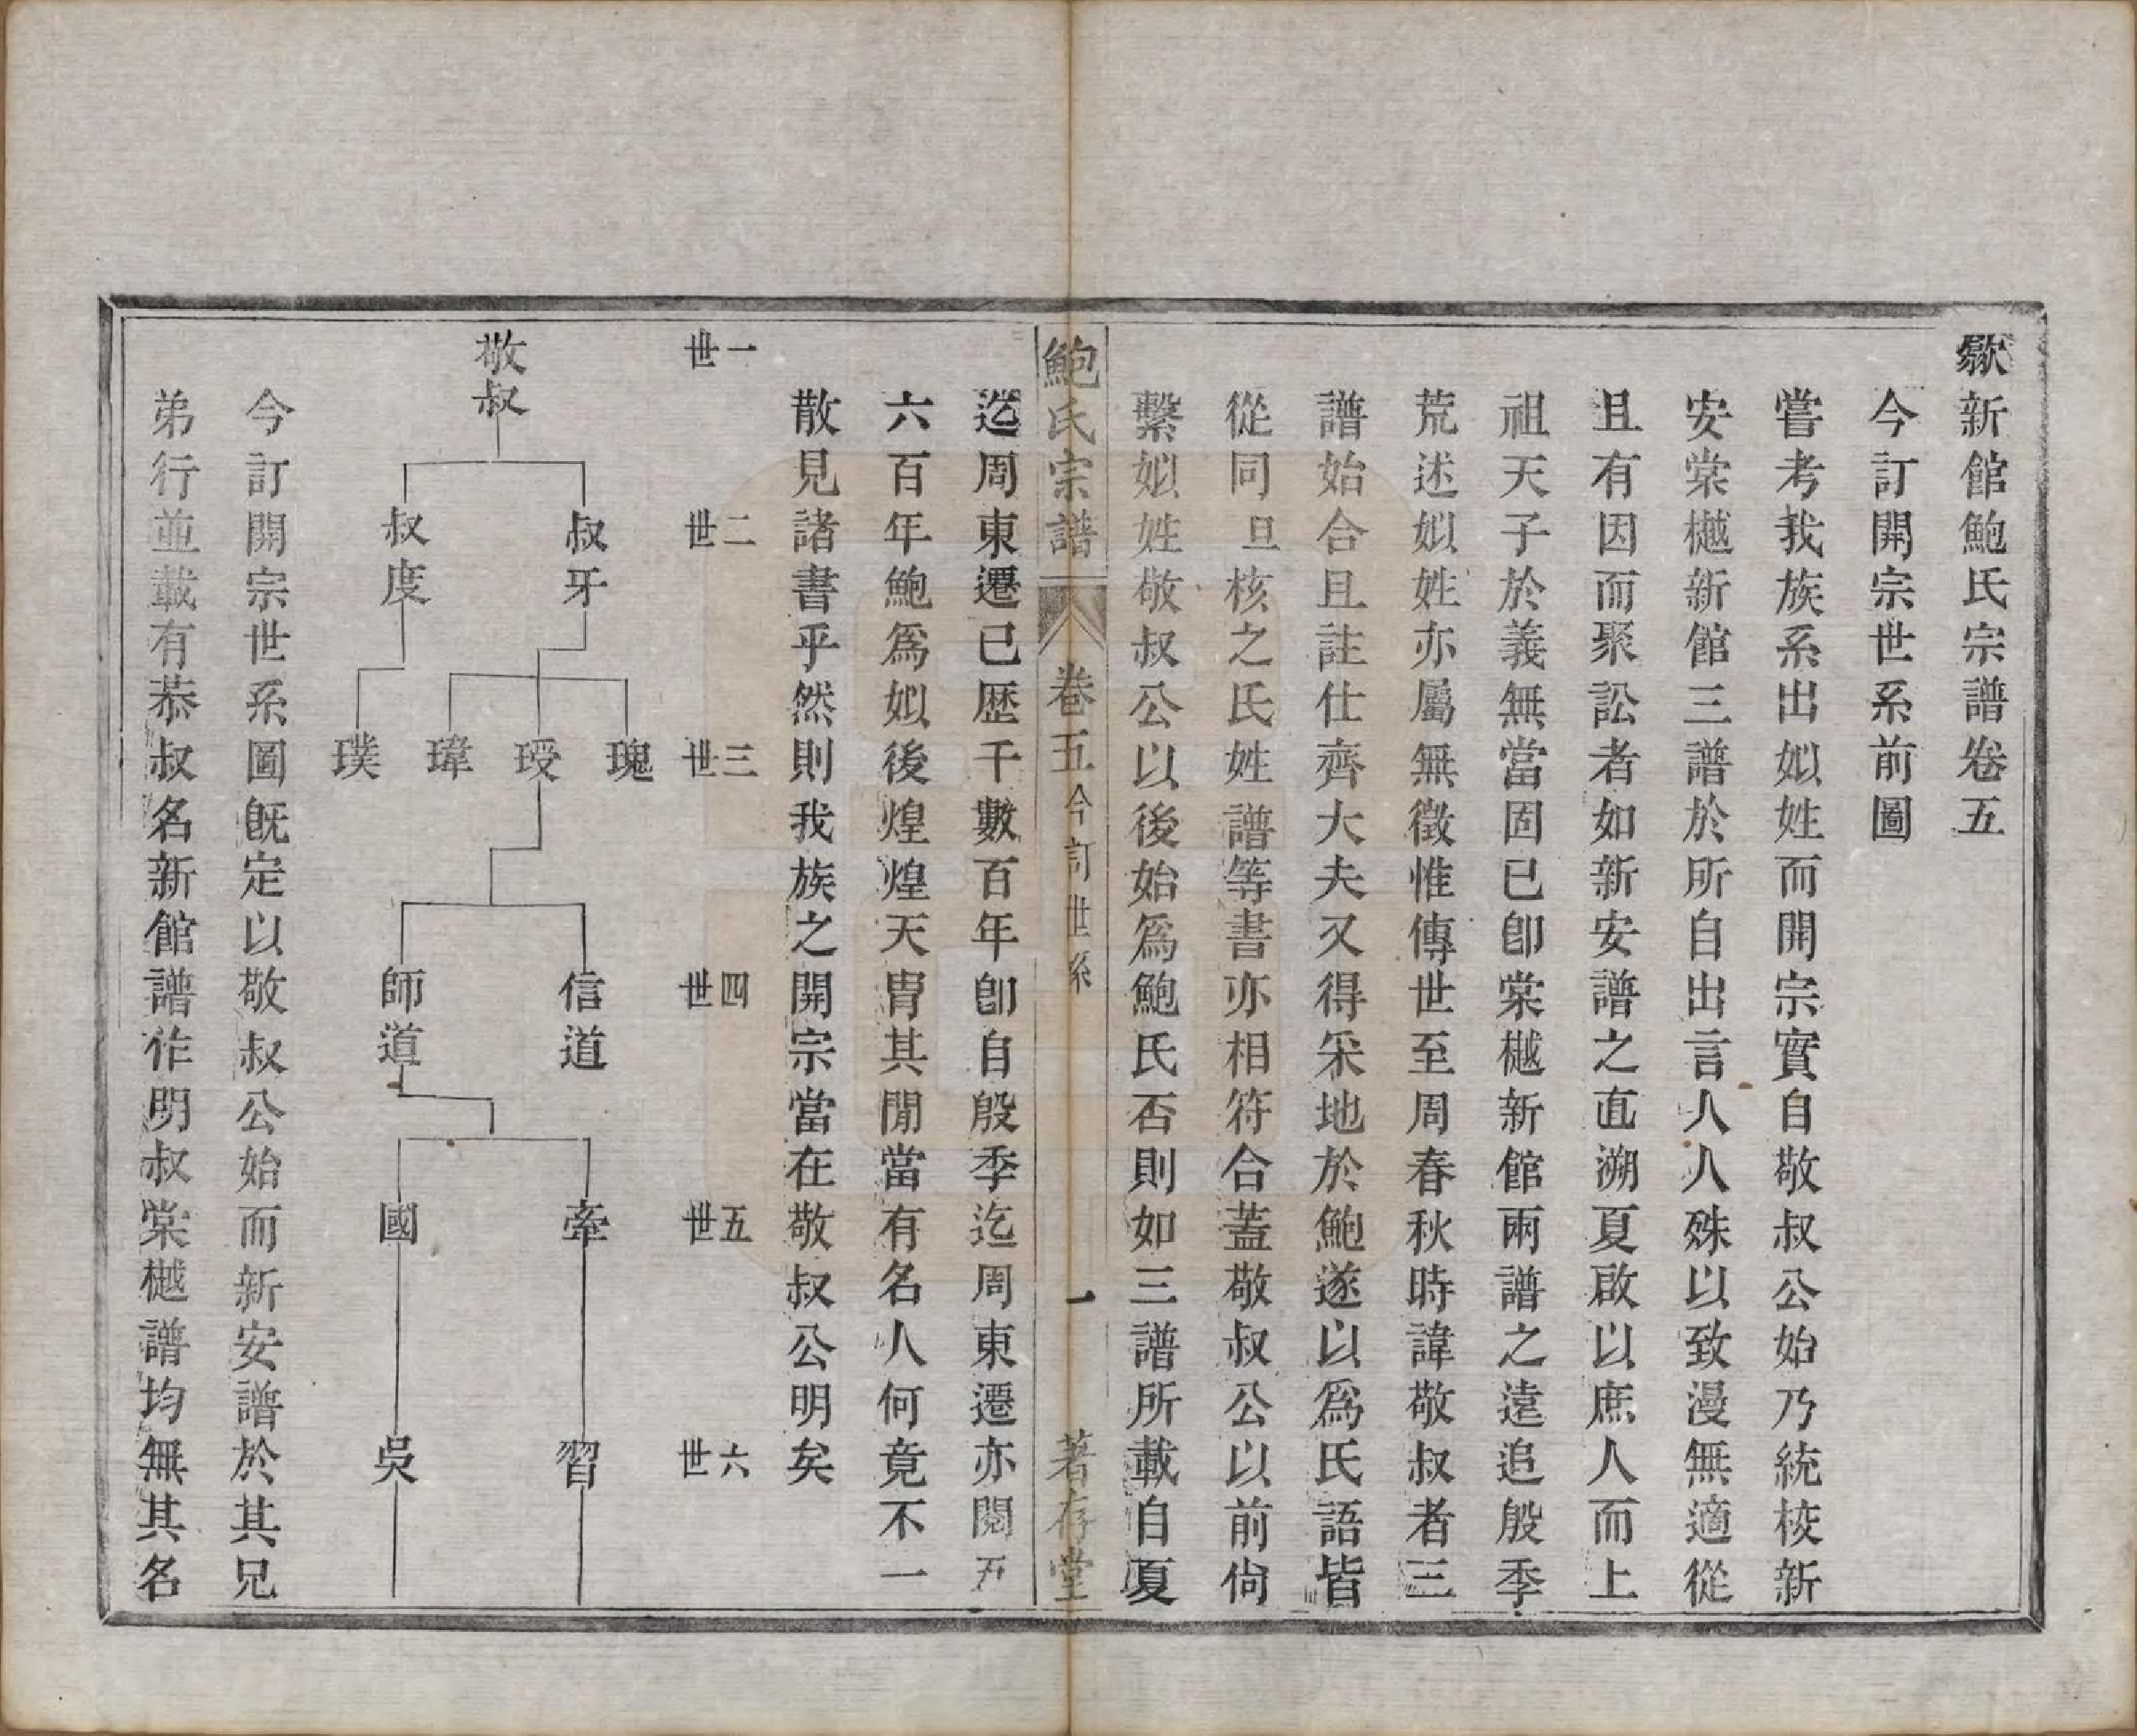 歙新館鮑氏宗譜卷五
今訂開宗世系前圖
嘗考我族系出姒姓而開宗實自敬叔公始乃統校新
安棠樾新館三譜於所自出言人人殊以致漫無適從
且有因而聚訟者如新安譜之直溯夏啟以庶人而上
祖天子於義無當固已卽棠樾新館兩譜之遠追殷季
荒述姒姓亦屬無徵惟傳世至周春秋時諱敬叔者三
譜始合且註仕齊大夫又得采地於鮑遂以爲氏語皆
從同旦核之氏姓譜等書亦相符合蓋敬叔公以前尙
繫姒姓敬叔公以後始爲鮑氏否則如三譜所載自夏
鮑氏宗譜 卷五 今訂世系 一 著存堂
迄周東遷已歷千數百年卽自殷季迄周東遷亦閱五
六百年鮑爲姒後煌煌天胄其閒當有名人何竟不一
散見諸書乎然則我族之開宗當在敬叔公明矣
一世 二世 三世 四世 五世 六世
敬叔
叔牙 叔度
瑰 瑴 瑋 璞
信道 師道
牽 國
習 吳
今訂開宗世系圖旣定以敬叔公始而新安譜於其兄
弟行並載有恭叔名新館譜作明叔棠樾譜均無其名